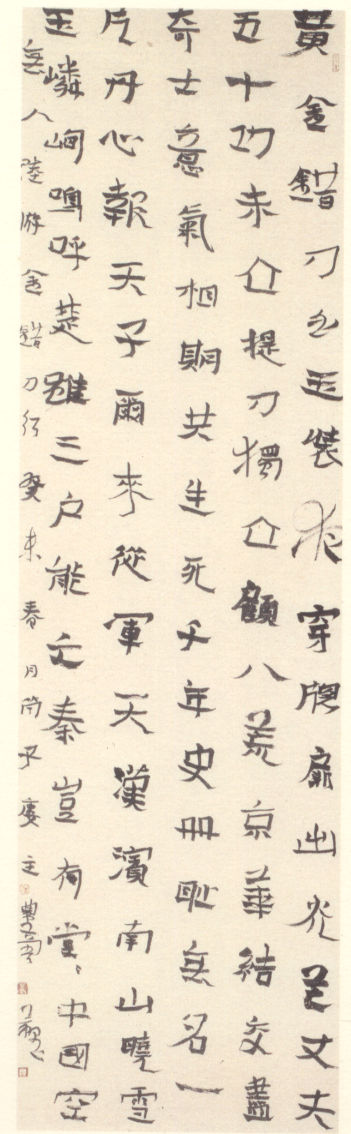 黃金錯刀白玉裝夜穿牕扉出光芒丈夫
五十功未立提刀獨立顧八荒京華結交盡
奇士意氣相期共生死千年史冊耻無名一
片丹心報天子爾來從軍天漢濱南山曉雪
玉嶙峋嗚呼楚雖三户能亡秦豈有堂〻中國空
無人陸游金錯刀行癸未春月